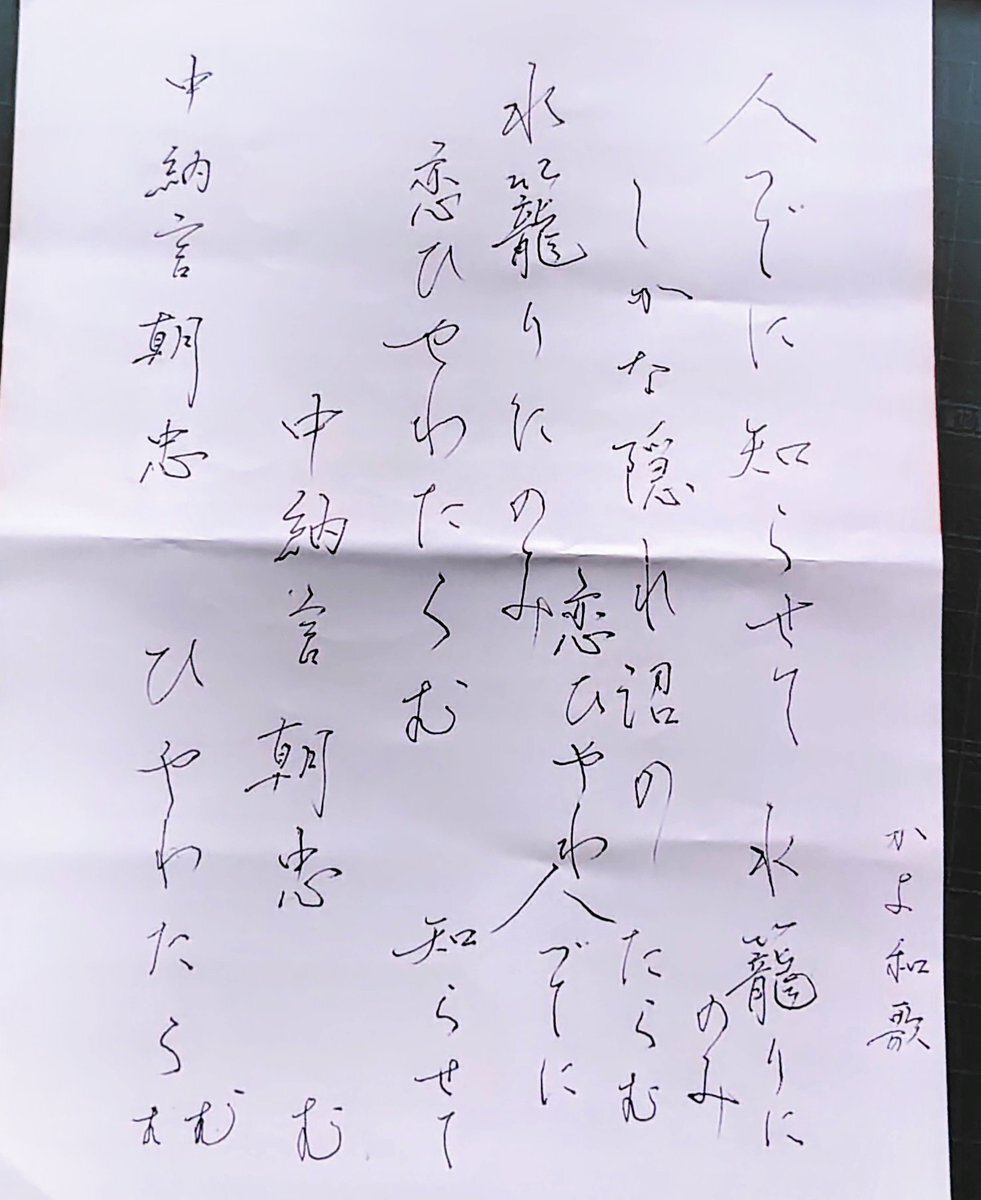 かよ和歌
人づてに知らせて 水籠りに
のみ
しかな隠れ沼の
恋ひやわ
たらむ
水籠りにのみ
人づてに
恋ひやわたらむ
知らせて
中納言朝忠
む
中納言朝忠
ひやわたらむ
む